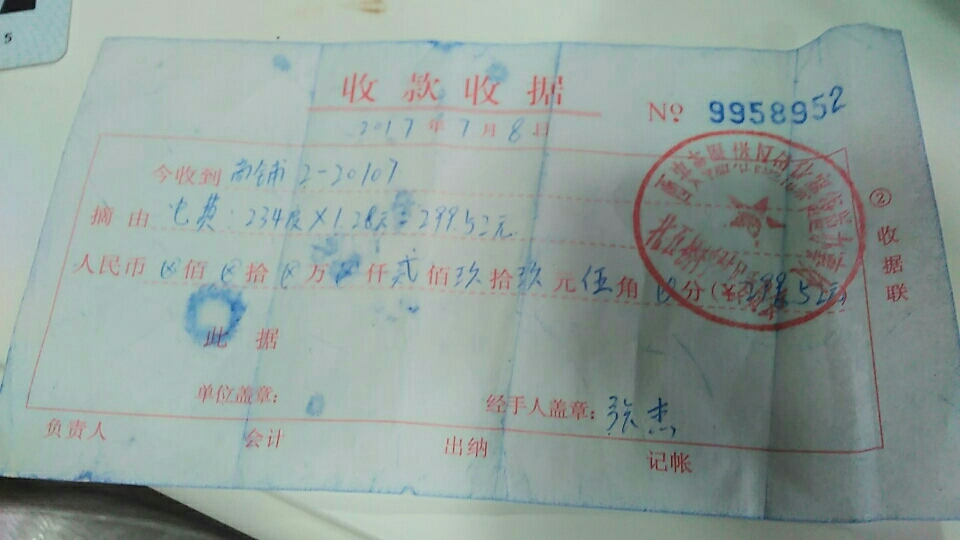 5
收款收据
No 9958952
2017年7月8日
今收到 商铺2-20107
摘由 电费: 234度×1.28元=299.52元
人民币 ⊗佰⊗拾⊗万⊗仟贰佰玖拾玖元伍角⊗分(¥299.52元
此据
单位盖章:
经手人盖章: 张杰
负责人 会计 出纳 记帐
② 收据联